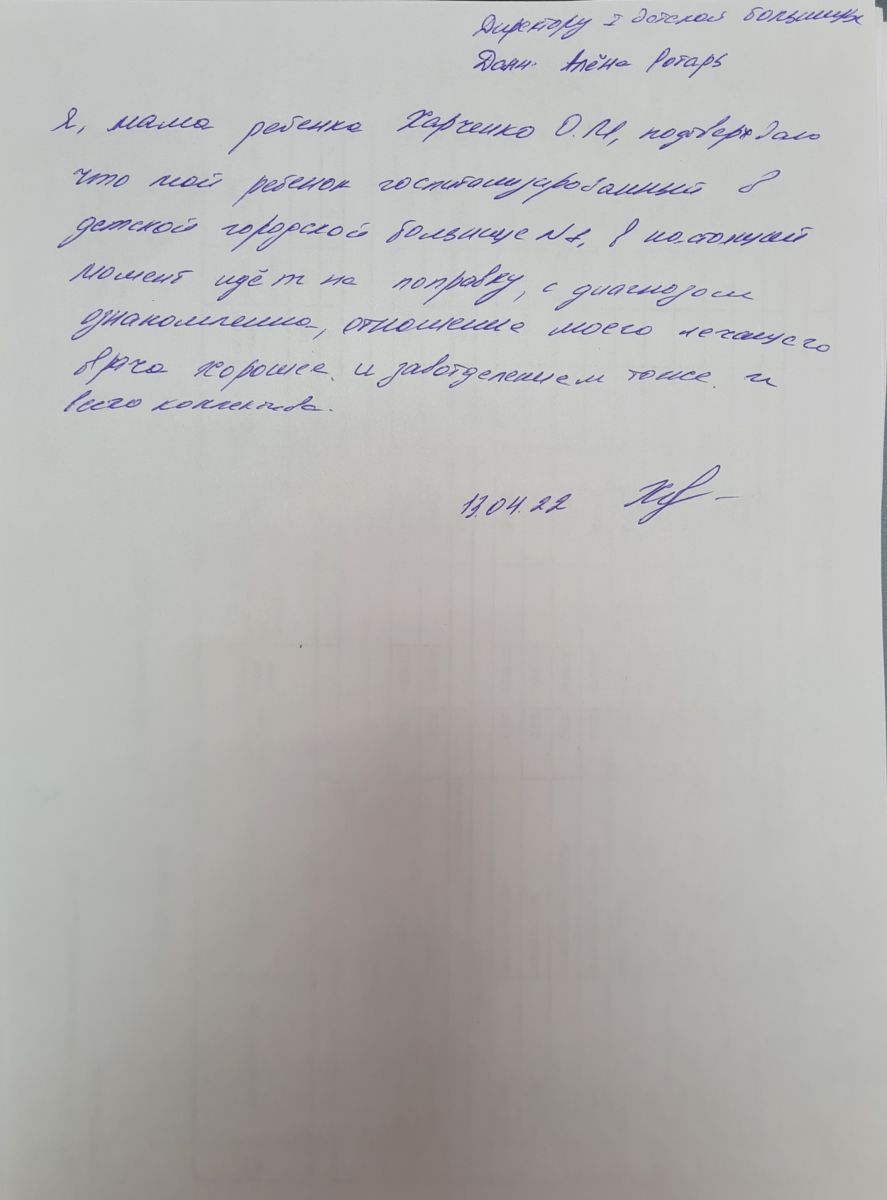 Директору I детской больницы
Домн. Алёна Ротарь
Я, мама ребенка Харченко О.М, подтверждаю
что мой ребенок госпитализированный в
детской городской больнице №1, в настоящий
момент идёт на поправку, с диагнозом
ознакомленна, отношение моего лечащего
врача хорошее. и завотделением тоже. и
всего коллектива.
13.04.22